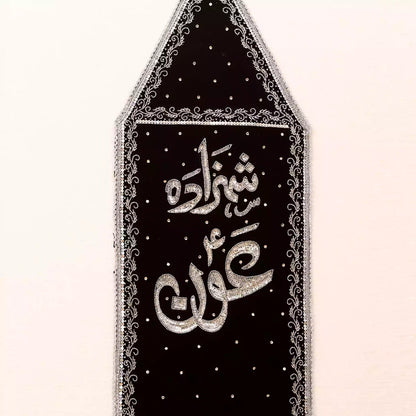 شہزادہ
عون ؑ